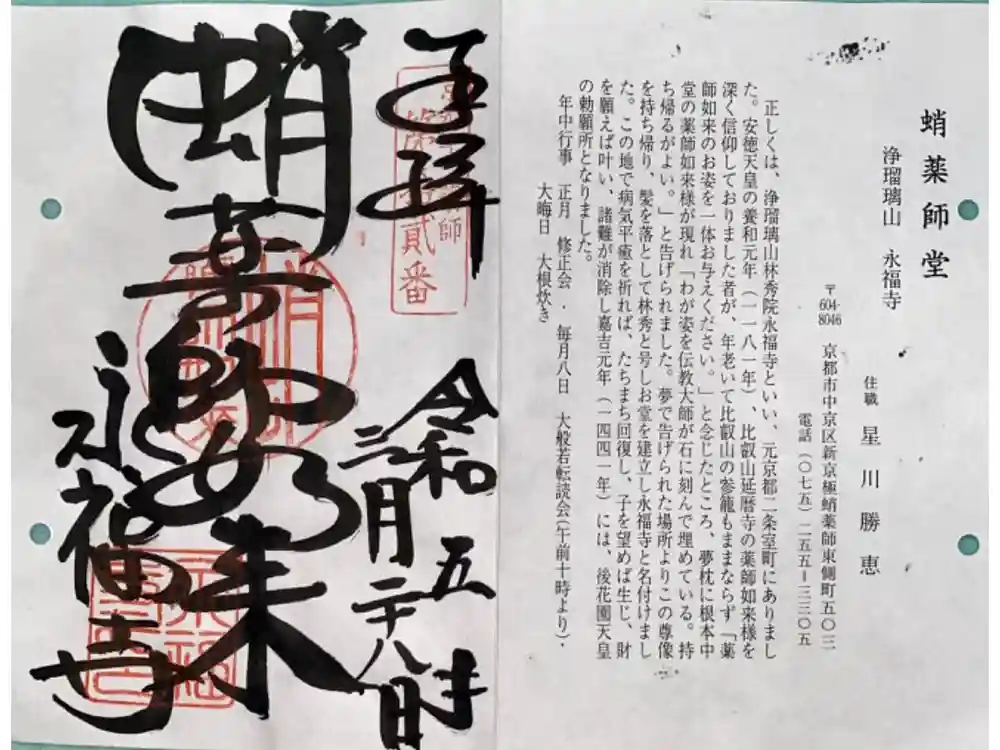 蛸薬師堂
浄瑠璃山　永福寺
住職　星川勝恵
〒604-8046　京都市中京区新京極蛸薬師東側町五〇三
電話（〇七五）二五五－三三〇五
正しくは、浄瑠璃山林秀院永福寺といい、元京都二条室町にありまし
た。安徳天皇の養和元年（一一八一年）、比叡山延暦寺の薬師如来様を
深く信仰しておりました者が、年老いて比叡山の参籠もままならず「薬
師如来のお姿を一体お与えください。」と念じたところ、夢枕に根本中
堂の薬師如来様が現れ「わが姿を伝教大師が石に刻んで埋めている。持
ち帰るがよい。」と告げられました。夢で告げられた場所よりこの尊像
を持ち帰り、髪を落として林秀と号しお堂を建立し永福寺と名付けまし
た。この地で病気平癒を祈れば、たちまち回復し、子を望めば生じ、財
を願えば叶い、諸難が消除し嘉吉元年（一四四一年）には、後花園天皇
の勅願所となりました。
年中行事　正月　修正会．毎月八日　大般若転読会(午前十時より)．
大晦日　大根炊き
奉拝
令和五年
三月二十八日
蛸薬師如来
永福寺
貳番
永福